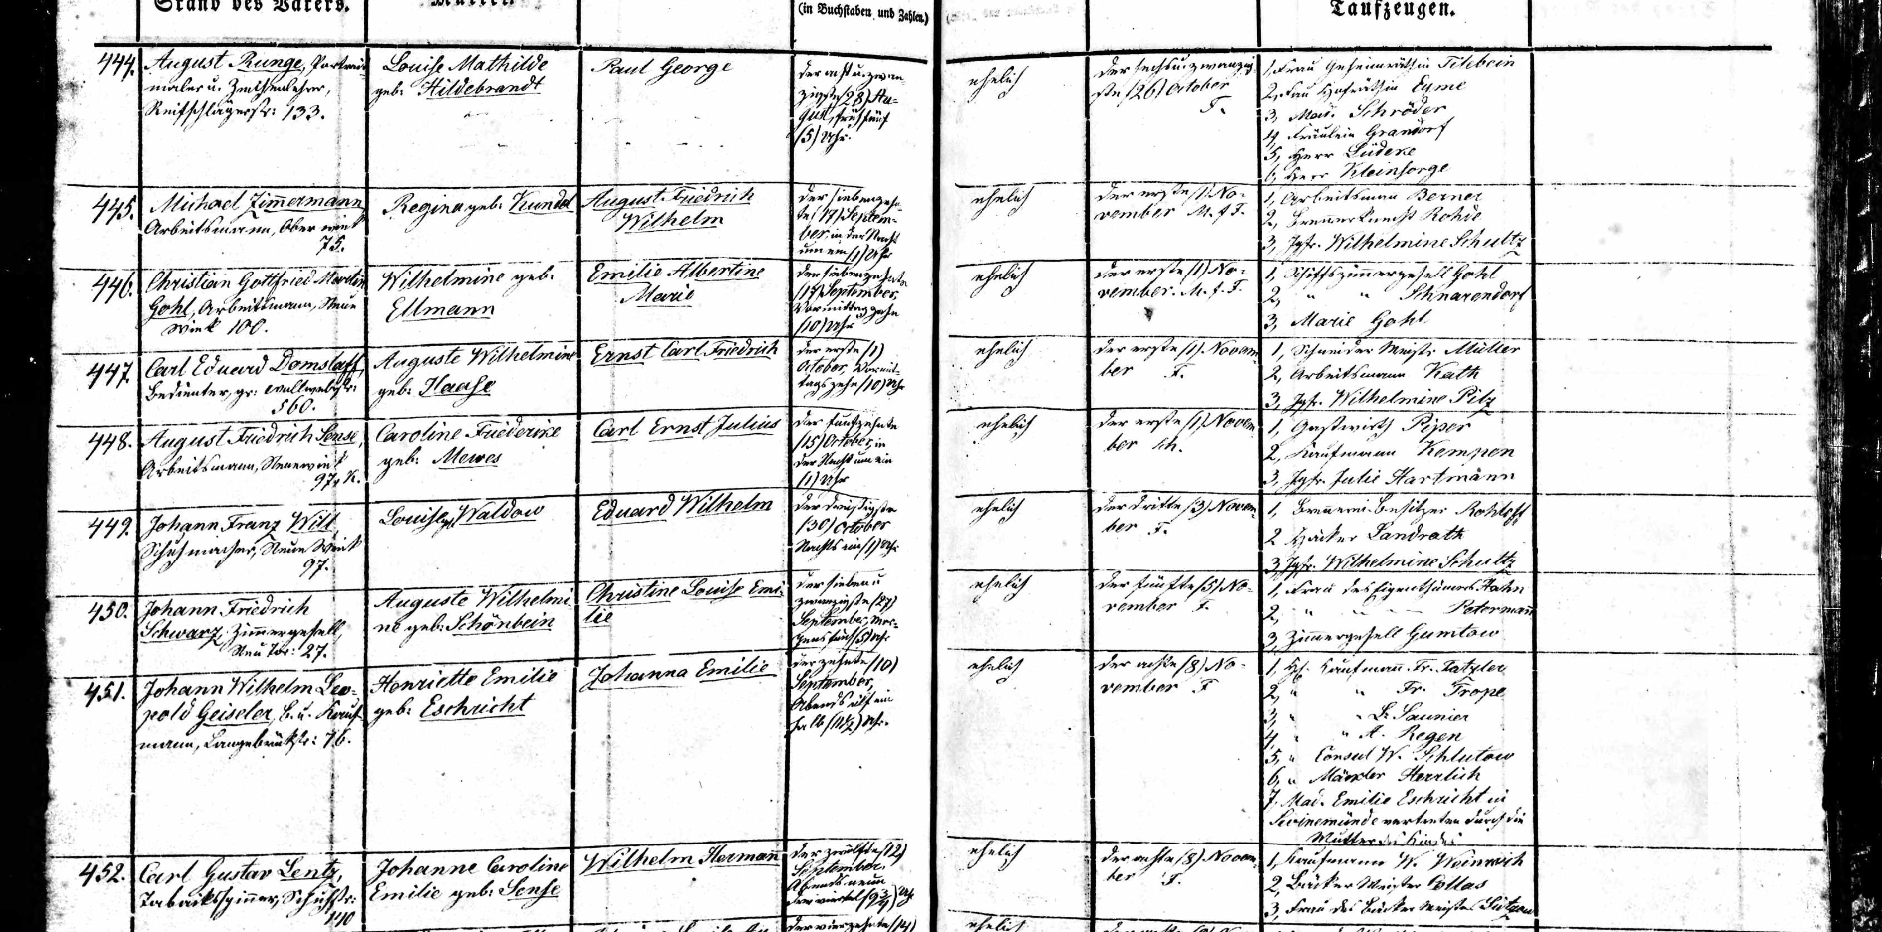 Stand des Vaters.
(in Buchstaben und Zahlen.)
Taufzeugen.
444.
August Runge, Portrait
maler u. Zeichenlehrer,
Reifschlägerstr: 133.
Louise Mathilde
geb: Hildebrandt
Paul George
der acht u. zwan
zigste (28) Au-
gust, früh fünf
(5) Uhr.
ehelich
der sechsu.zwanzig
ste (26) October
T.
1, Frau Geheimräthin Titzbein
2, Frau Hofräthin Eyme
3, Mad. Schröder
4, Fräulein Grandorf
5, Herr Lüdeke
6, Herr Kleinsorge
445.
Michael Zimmermann
Arbeitsmann, Ober wiek
75.
Regina geb: Kundel
August Friedrich
Wilhelm
der siebenzehn
te (17) Septem-
ber, in der Nacht
um ein (1) Uhr
ehelich
der erste (1) No-
vember M. f. T.
1, Arbeitsmann Berner
2, Brennerknecht Rohde
3, Jgfr. Wilhelmine Schultz
446.
Christian Gottfried Martin
Gohl, Arbeitsmann, Neue
Wiek 100.
Wilhelmine geb:
Ellmann
Emilie Albertine
Marie
der siebenzehnte
(17) September,
Vormittag zehn
(10) Uhr
ehelich
der erste (1) No-
vember. M. f. T.
1, Schiffszimmergesell Gohl
2, " " Schnarendorf
3, Marie Gohl
447.
Carl Eduard Domslaff,
Bedienter, gr: Wollweberstr:
560.
Auguste Wilhelmine
geb: Haase
Ernst Carl Friedrich
der erste (1)
October, Vormit-
tags zehn (10) Uhr
ehelich
der erste (1) Novem
ber T.
1, Schneider Meistr Müller
2, Arbeitsmann Rath
3, Jgfr. Wilhelmine Pilz
448.
August Friedrich Sense,
Arbeitsmann, Neuewiek
Caroline Friederike
geb: Mewes
Carl Ernst Julius
der funfzehnte
(15) October, in
der Nacht um ein
(1) Uhr
ehelich
der erste (1) Novem
ber Sch.
1, Gastwirth Piper
2, Kaufmann Kempen
3, Jgfr. Julie Hartmann
449.
Johann Franz Witt
Schuhmacher, Neue Wiek
97.
Louise geb. Waldow
Eduard Wilhelm
der dreißigste
(30) October
Nachts ein (1) Uhr
ehelich
der dritte (3) Novem
ber T.
1, Brennerei-Besitzer Rohloff
2 Häcker Landrath
3, Jgfr. Wilhelmine Schultz
450.
Johann Friedrich
Schwarz, Zimmergesell,
Neu Tor: 27.
Auguste Wilhelmi
ne geb: Schönbein
Christine Louise Emi-
lie
der sieben u
zwanzigste (27)
September, Mor-
gens fünf (5) Uhr
ehelich
der fünfte (5) No-
vember T.
1, Frau des Eigenthümers Hahn
2, " " Petermann
3, Zimmergesell Gumtow
451.
Johann Wilhelm Leo-
pold Geiseler, B. u. Kauf
mann, Langebrückstr: 76.
Henriette Emilie
geb: Eschricht
Johanna Emilie
der zehnte (10)
September,
Abends elf ein
halb (11½) Uhr.
ehelich
der achte (8) No-
vember T
1, H. Kaufmann Fr. Tatzler
2, " " Fr. Trope
3, " " L. Saunier
4, " " A. Regen
5, " Consul W. Schlutow
6, " Mäckler Herrlich
7, Mad. Emilie Eschricht in
Swinemünde vertreten durch die
Mutter des Kindes
452.
Carl Gustav Lentz,
Tabakspinner, Schuhstr:
140
Johanne Caroline
Emilie geb: Sense
Wilhelm Hermann
der zwölfte (12)
September,
Abends neun
drei viertel (9¾) Uhr
ehelich
der achte (8) Novem
ber T.
1, Kaufmann W. Weinreich
2, Bäcker Meister Collas
3, Frau des Bäcker Meisters Lützow
der vierzehnte (14)
ehelich